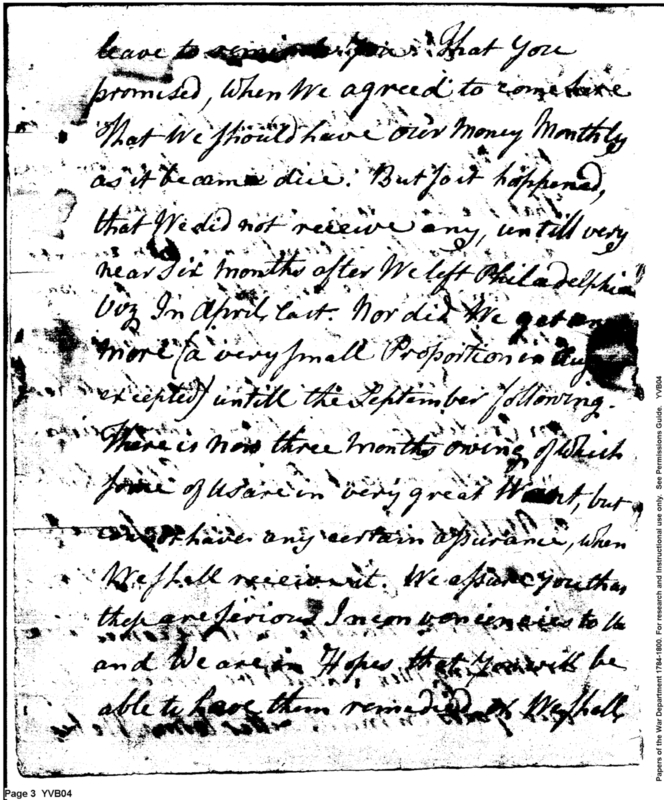 leave to remind you. That You
promised, When We agreed to come here
That We should have our Money Monthly
as it became due. But so it happened,
that We did not receive any, untill very
near Six Months after We left Philadelphia
Viz In April last. Nor did We get any
more (a very small Proportion in Augt
excepted) untill the September following.
There is now three Months owing, of which
some of us are in very great Want, but
cannot have any certain assurance, when
We shall receive it. We assure you that
these are serious Inconveniencies to Us
and We are in Hopes that you will be
able to have them remedied or We shall
Page 3 YVB04
Papers of the War Department 1784-1800. For research and instructional use only. See Permissions Guide. YVB04